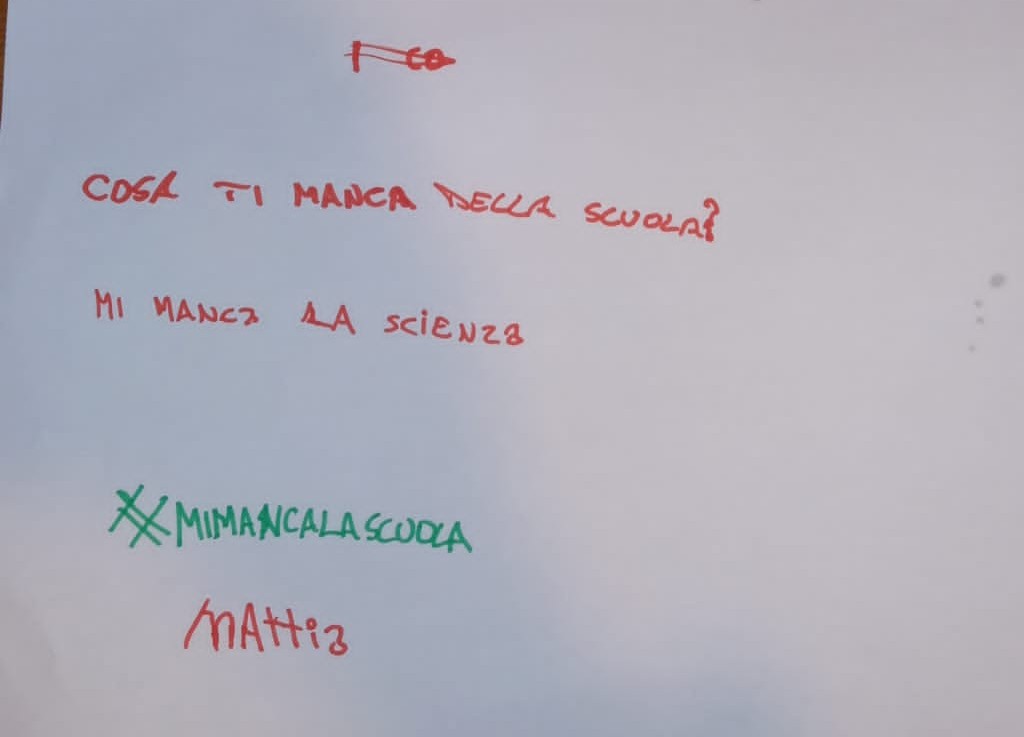 COSA TI MANCA DELLA SCUOLA?
MI MANCa LA SCiENZa
#MIMANCALASCUOLA
MAttia